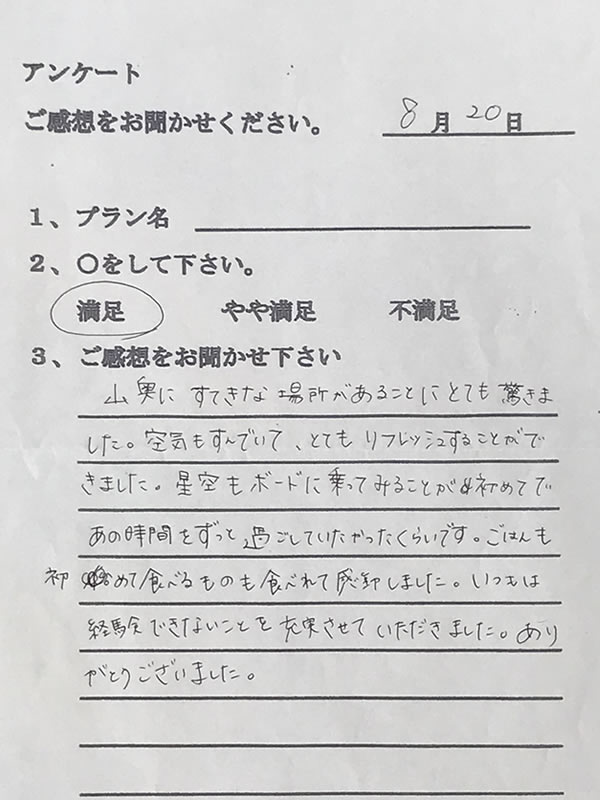 アンケート
ご感想をお聞かせください。 8月20日
1、プラン名
2、〇をして下さい。
満足 やや満足 不満足
3、ご感想をお聞かせ下さい
山奥にすてきな場所があることにとても驚きま
した。空気もすんでいて、とてもリフレッシュすることがで
きました。星空もボードに乗ってみることが初めてで
あの時間をずっと過ごしていたかったくらいです。ごはんも
初めて食べるものも食べれて感動しました。いつもは
経験できないことを充実させていただきました。あり
がとうございました。